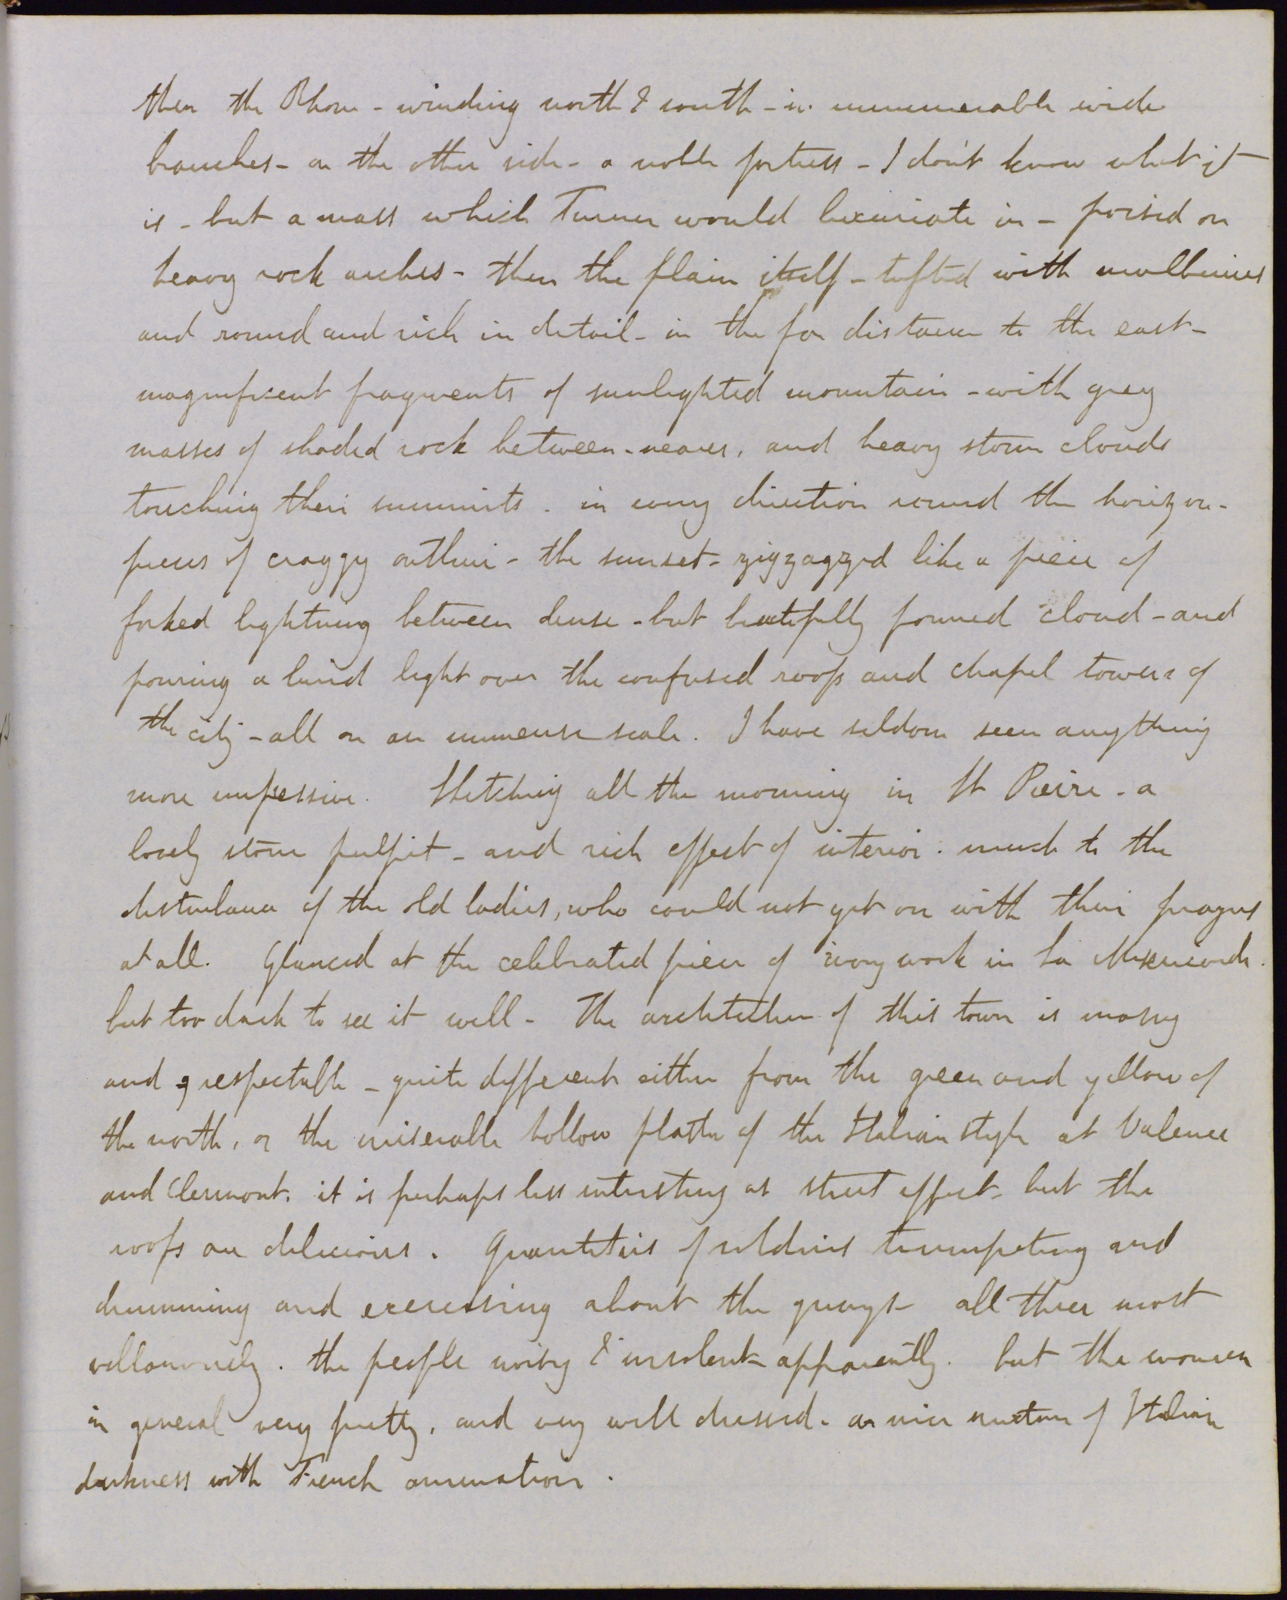 then the Rhone - winding north & south - in innumerable wide
branches - on the other side - a noble fortress - I don't know what it
is - but a mass which Turner would luxuriate in - poised on
heavy rock arches - then the plain itself - tufted with mulberries
and round and rich in detail - in the far distance to the east -
magnificent fragments of sunlighted mountain - with grey
masses of shaded rock between - nearer, and heavy storm clouds
touching their summits. in every direction round the horizon -
pieces of craggy outline - the sunset - zigzagged like a piece of
forked lightning between dense - but beautifully formed cloud - and
pouring a lurid light over the confused roofs and chapel towers of
the city - all on an immense scale. I have seldom seen anything
more impressive. Sketching all the morning in St Pierre - a
lovely stone pulpit - and rich effect of interior. much to the
disturbance of the old ladies, who could not get on with their prayers
at all. Glanced at the celebrated piece of ivory work in La Misericorde.
but too dark to see it well - The architecture of this town is massy
and respectable - quite different either from the green and yellow of
the north, or the miserable hollow plaster of the Italian style at Valence
and Clermont. it is perhaps less interesting as street effect. but the
roofs are delicious. Quantities of soldiers trumpeting and
drumming and exercising about the all three most
villainously. the people noisy & insolent apparently. but the women
in general very pretty, and very well dressed. a nice mixture of Italian
darkness with French animation.